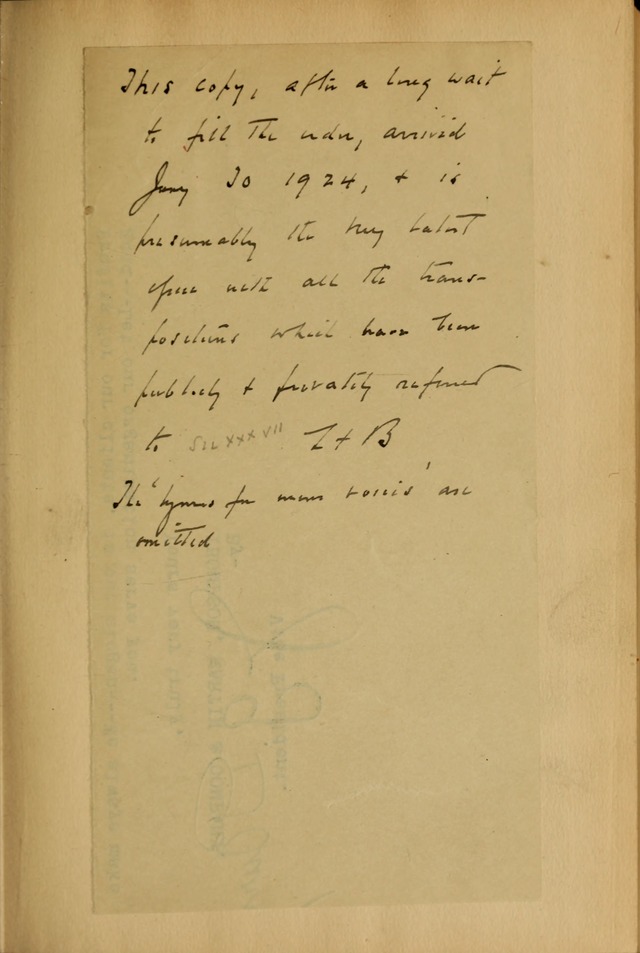 This copy, after a long wait
to fill the order, arrived
Jany 30 1924, & is
presumeably the very latest
issue with all the trans-
positions which have been
publicly & privately referred
to See XXXVII L & B
The 'hymns for mens voices' are
omitted